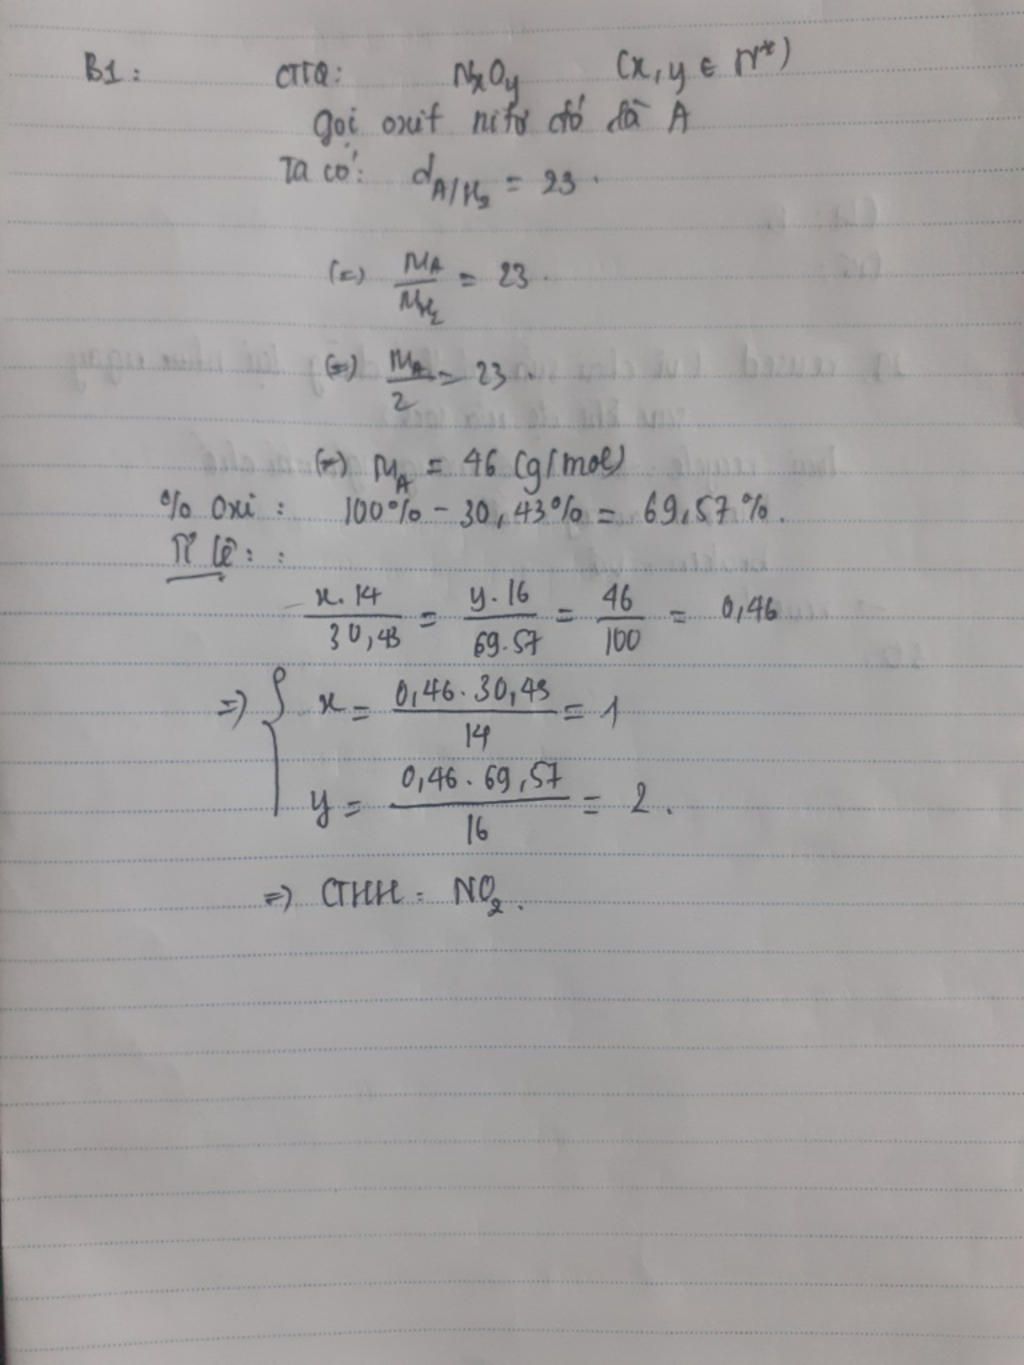 B1: CTTQ: NxOy (x, y ∈ N*)
Gọi oxit nitơ đó là A
Ta có: d A/H₂ = 23.
(=) M_A / M_H₂ = 23.
(=) M_A / 2 = 23.
(=) M_A = 46 (g/mol)
% Oxi: 100% - 30,43% = 69,57%.
Tỉ lệ: :
x.14 / 30,43 = y.16 / 69.57 = 46 / 100 = 0,46
=> { x = 0,46. 30,43 / 14 = 1
y = 0,46. 69,57 / 16 = 2.
=> CTHH: NO₂.